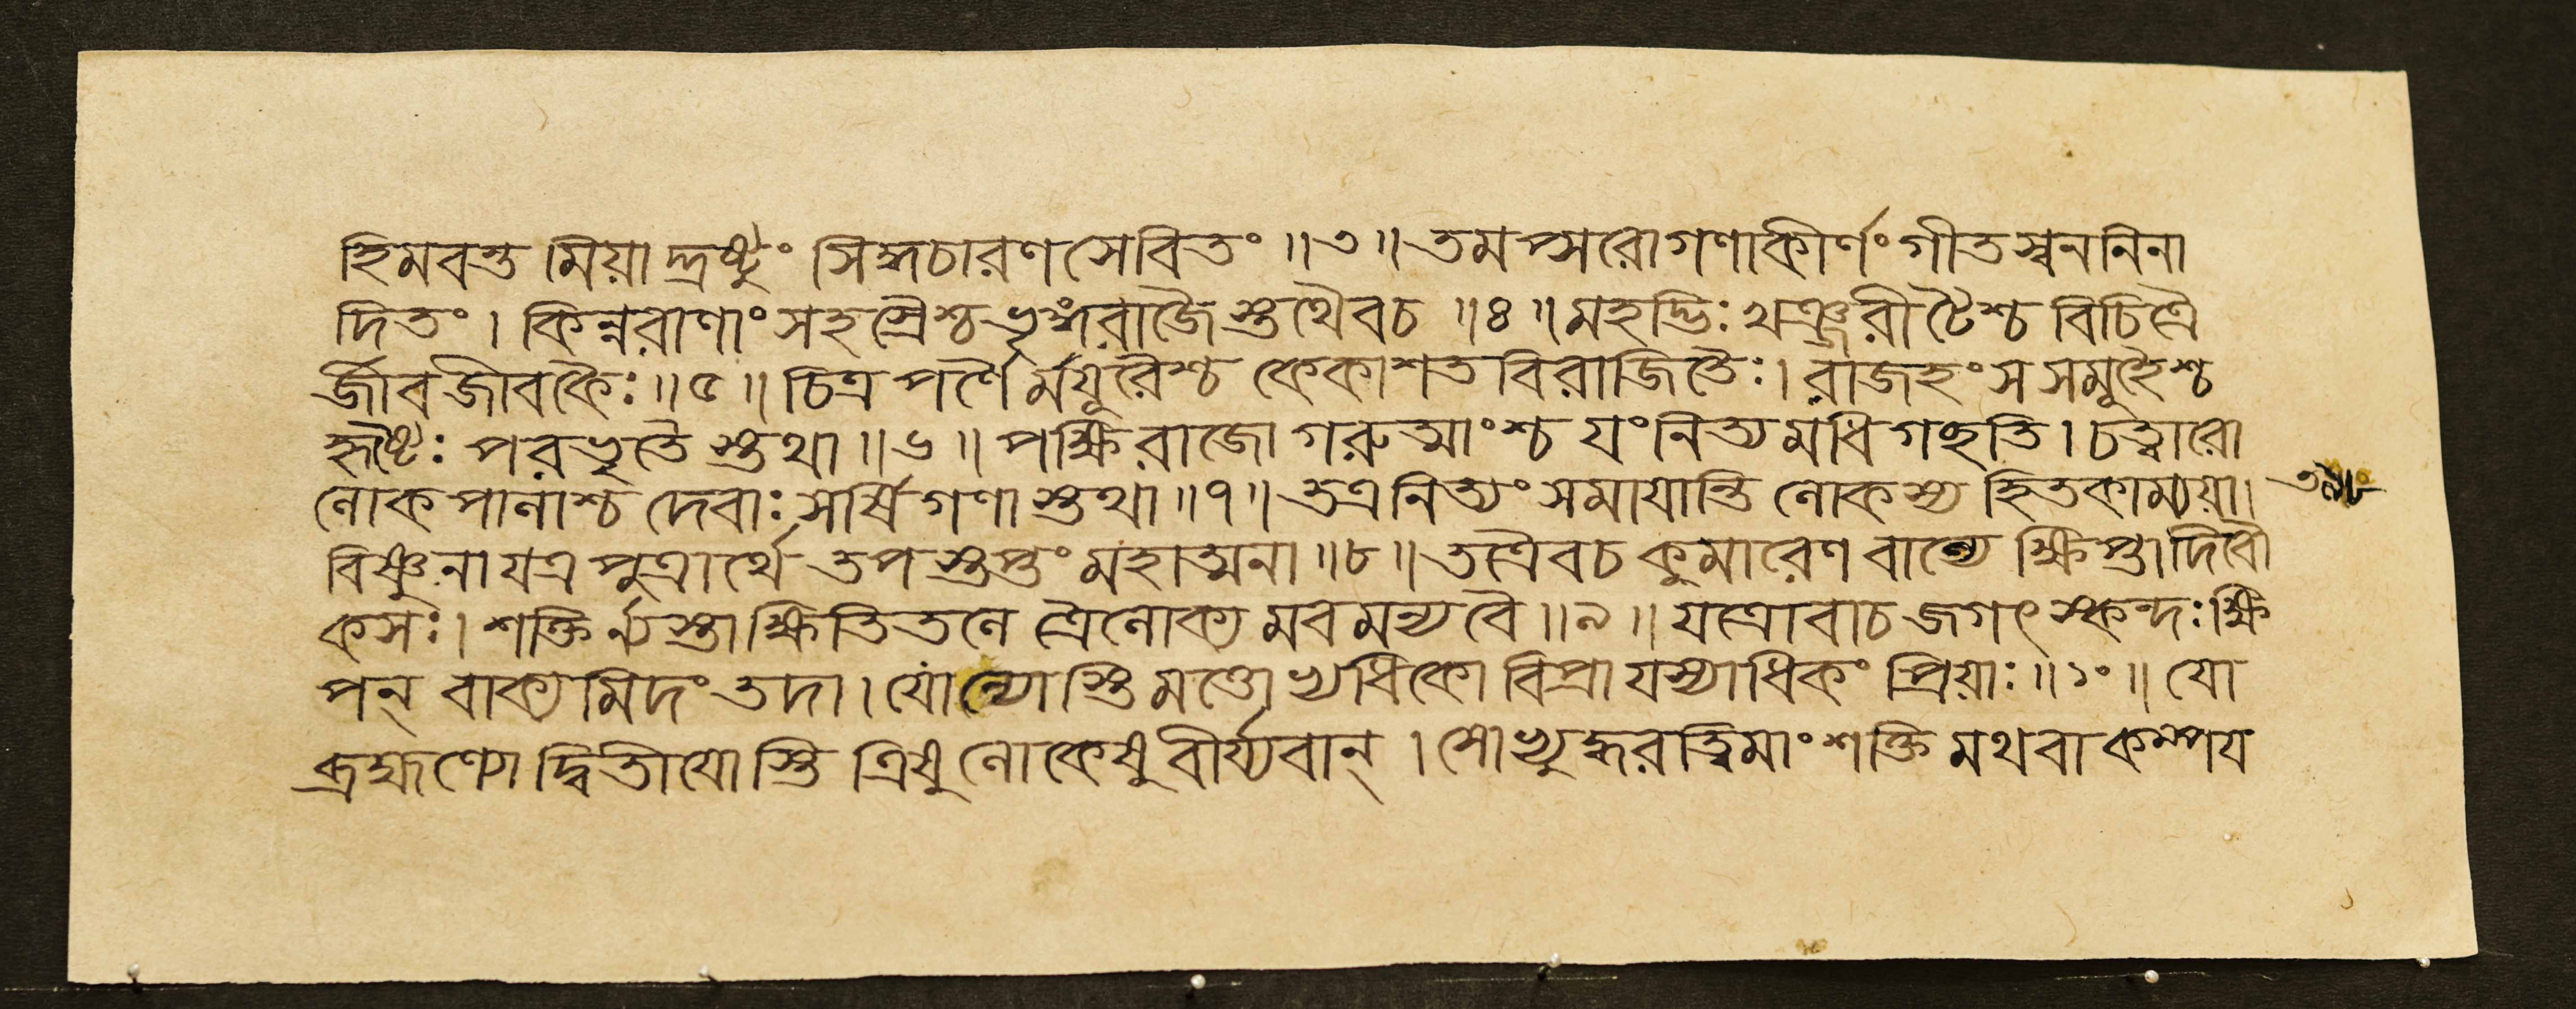 হিমবন্ত মিয়া দ্দ্রষ্টুং সিদ্ধচারণ সেবিতং ॥৩॥ তমপ্সরোগণাকীর্ণং গীতস্বননিনা
দিতং। কিন্নরাণাং সহস্রৈশ্চ ভৃঙ্গরাজৈ স্তথৈবচ ॥৪॥ মহদ্ভিঃ খঞ্জরীটৈশ্চ বিচিত্রৈ
র্জীবজীবকৈঃ ॥৫॥ চিত্রপর্ণৈ র্ময়ূরৈশ্চ কেকাশত বিরাজিতৈঃ। রাজহংস সমূহৈশ্চ
হৃষ্টৈঃ পরভৃতৈ স্তথা ॥৬॥ পক্ষিরাজো গরুত্মাংশ্চ যং নিত্য মধি গচ্ছতি। চত্বারো
লোকপালাশ্চ দেবাঃ সর্ষিগণা স্তথা ॥৭॥ তত্র নিত্যং সমাযান্তি লোকস্য হিতকাম্যয়া।
বিষ্ণুনা যত্র পুত্রার্থে তপ স্তপ্তং মহাত্মনা ॥৮॥ তত্রৈবচ কুমারেণ বাল্যে ক্ষিপ্তা দিবৌ
কসঃ। শক্তি র্ন্যস্তা ক্ষিতিতলে ত্রৈলোক্য মবমন্য বৈ ॥৯॥ যত্রোবাচ জগৎ স্কন্দঃ ক্ষি
পন্ বাক্য মিদং তদা। যোন্যোস্তি মত্তোভ্যধিকো বিপ্রা যস্যাধিকং প্রিয়াঃ ॥১০॥ যো
ব্রহ্মণ্যো দ্বিতীযোস্তি ত্রিষু লোকেষু বীর্য্যবান্। সোভ্যুদ্ধরত্বিমাং শক্তি মথবা কম্পয